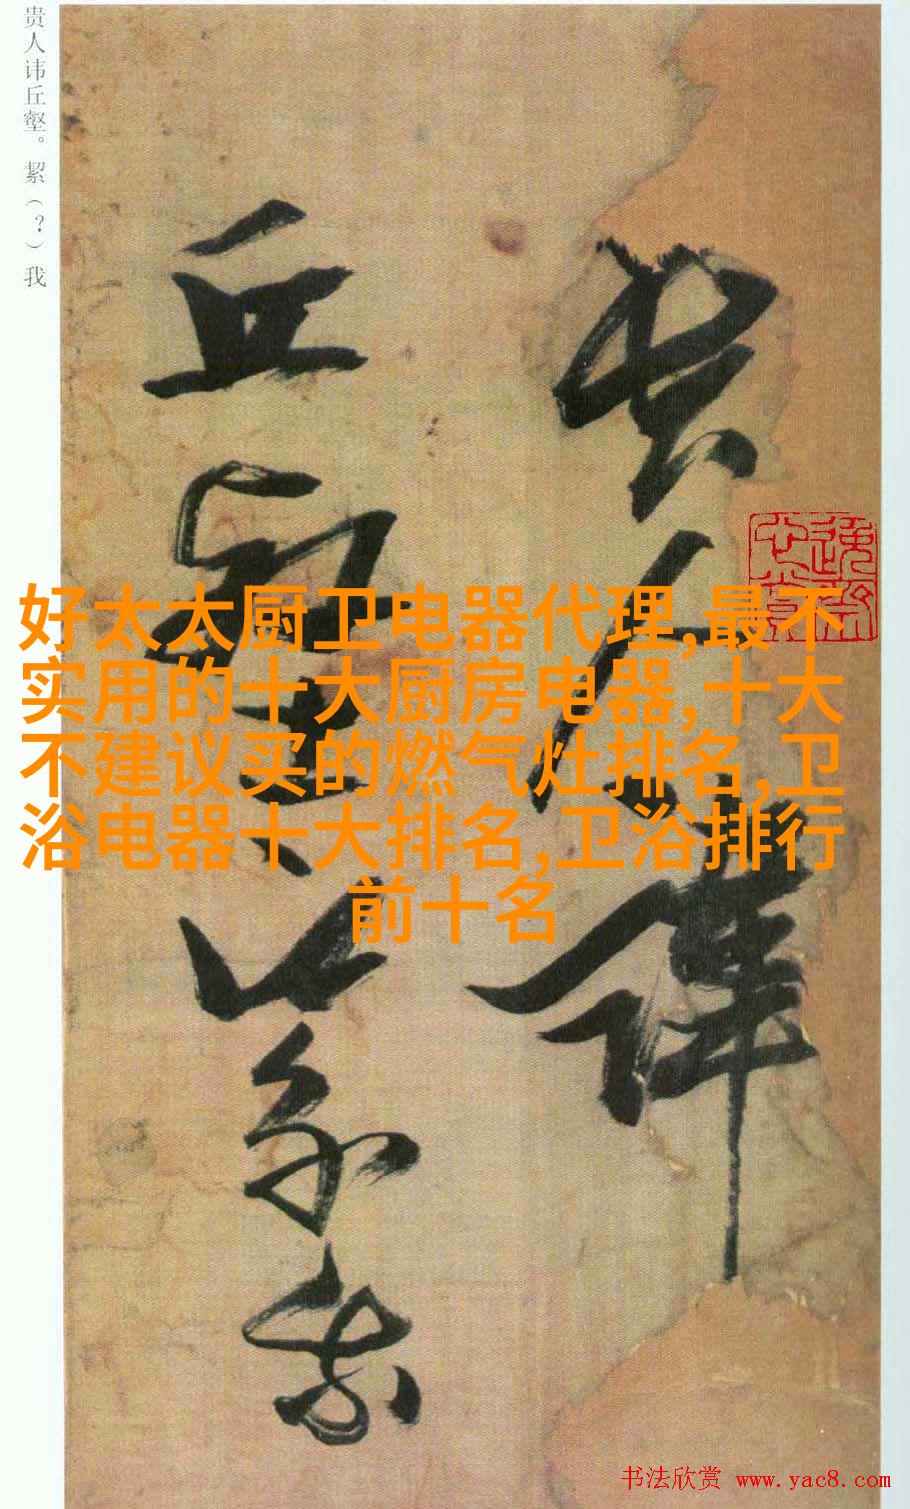 贵人讳丘壑。絜（？）我
贵人讳
丘壑。絜我
好太太厨卫电器代理,最不
实用的十大厨房电器,十大
不建议买的燃气灶排名,卫
浴电器十大排名,卫浴排行
前十名
书法欣赏 www.yac8.com